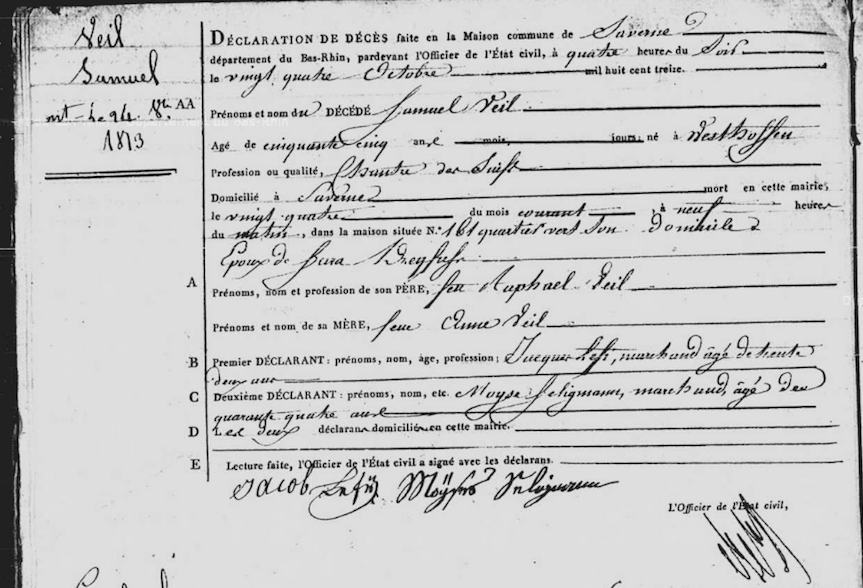 Veil
Samuel
mt Le 24. 8bre
1813
DÉCLARATION DE DÉCÈS faite en la Maison commune de Saverne
département du Bas-Rhin, pardevant l'Officier de l'État civil, à quatre heures du Soir
le vingt quatre Octobre mil huit cent treize.
AA
Prénoms et nom du DÉCÉDÉ Samuel Veil
Agé de cinquante cinq ans mois, jours; né à Westhoffen
Profession ou qualité, Chantre des Juifs
Domicilié à Saverne mort en cette mairie,
le vingt quatre du mois courant, à neuf heures
du matin, dans la maison située N.° 161 quartier vert Son Domicile
Epoux de Sara Dreyfuss
A
Prénoms, nom et profession de son PÈRE, feu Raphael Veil
Prénoms et nom de sa MÈRE, feue Anne Veil
B
Premier DÉCLARANT: prénoms, nom, âge, profession; Jacques , marchand âgé de trente
deux ans
C
Deuxième DÉCLARANT: prénoms, nom, etc. Moyse Seligmann, marchand, âgé de
quarante quatre ans
D
Les deux déclarans domiciliés en cette mairie.
E
Lecture faite, l'Officier de l'État civil a signé avec les déclarans.
Jacob Moÿses Seligmann
L'Officier de l'État civil,